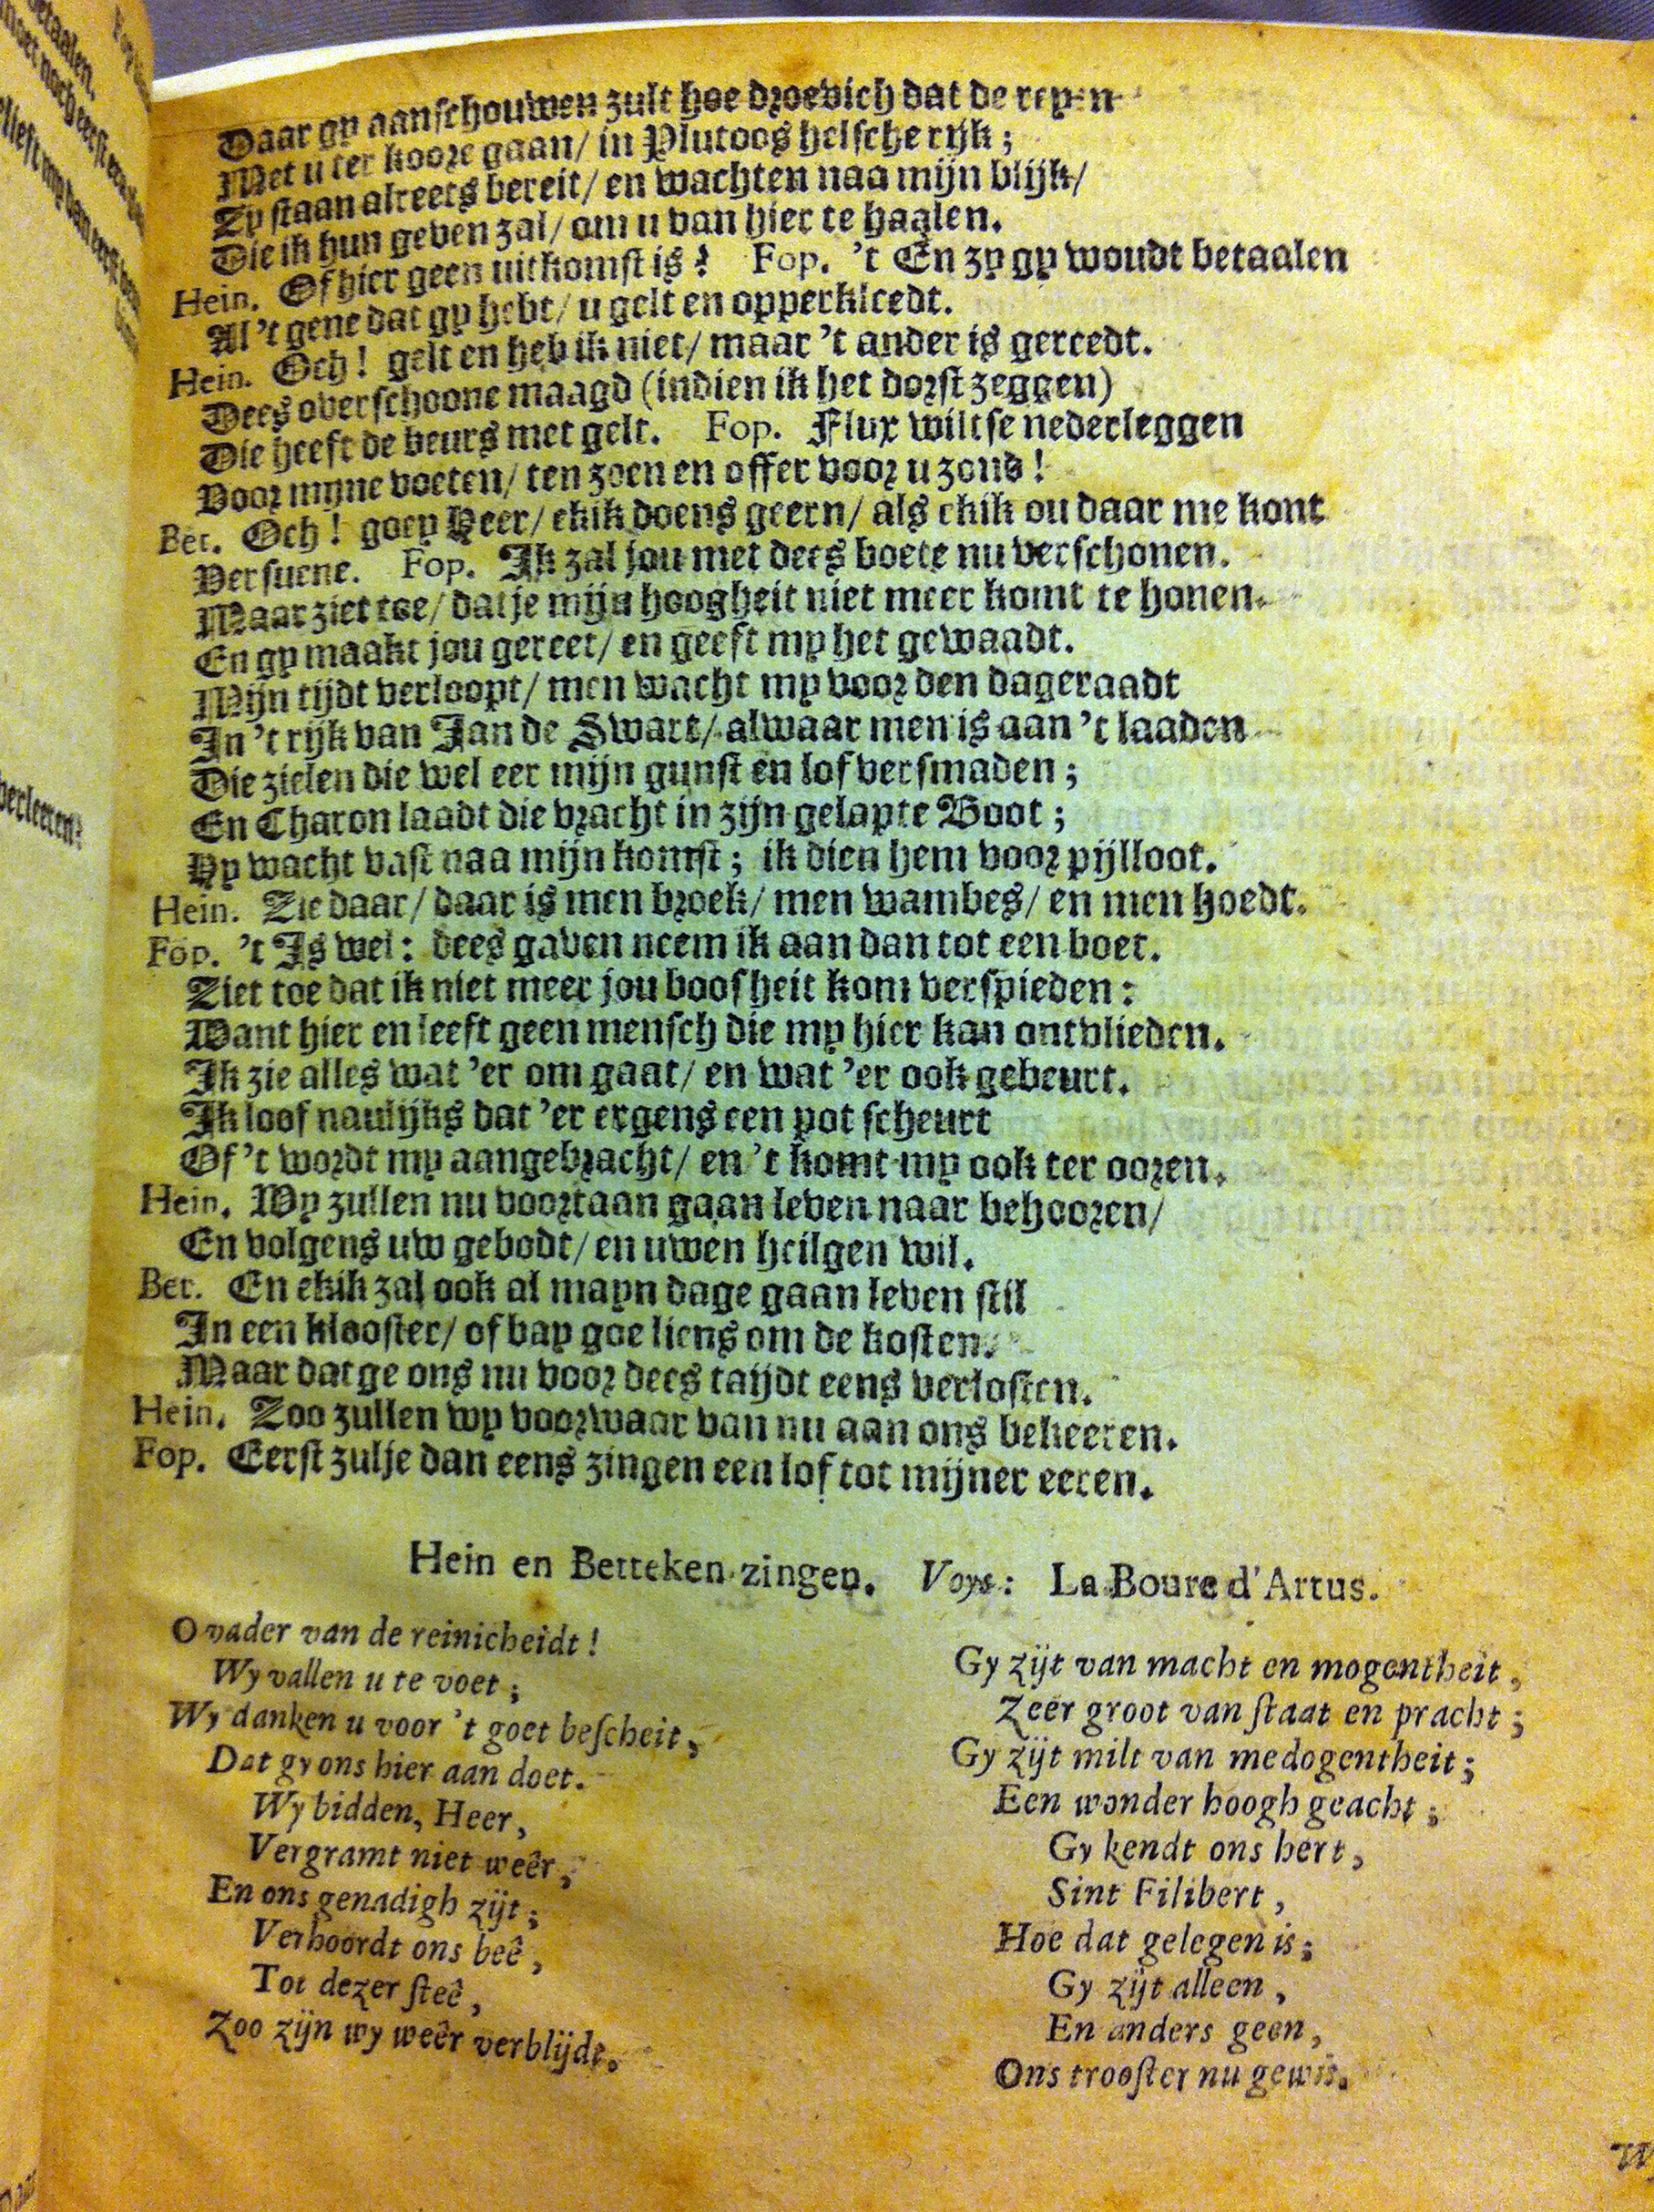 Daar gy aanschouwen zult hoe droevich dat de reyen
Met u ter koore gaan/ in Plutoos helsche rijk;
Zy staan alreets bereit/ en wachten naa mijn blijk/
Die ik hun geven zal/ om u van hier te haalen.
Hein. Of hier geen uitkomst is? Fop. 't En zy gy woudt betaalen
Al 't gene dat gy hebt/ u gelt en opperkleedt.
Hein. Och! gelt en heb ik niet/ maar 't ander is gereedt.
Dees overschoone maagd (indien ik het dorst zeggen)
Die heeft de beurs met gelt. Fop. Flux wilt se nederleggen
Voor mijne voeten/ ten zoen en offer voor u zond!
Bet. Och! goey Heer/ ekik doens geern/ als ekik ou daar me kont
Versuene. Fop. Ik zal jou met dees boete nu verschonen.
Maar ziet toe/ dat je mijn hoogheit niet meer komt te honen.
En gy maakt jou gereet/ en geeft my het gewaadt.
Mijn tijdt verloopt/ men wacht my voor den dageraadt
In 't rijk van Jan de Swart/ alwaar men is aan 't laaden
Die zielen die wel eer mijn gunst en lof versmaden;
En Charon laadt die vracht in zijn gelapte Boot;
Hy wacht vast naa mijn komst; ik dien hem voor pijlloot.
Hein. Zie daar/ daar is men broek/ men wambes/ en men hoedt.
Fop. 't Is wel: dees gaven neem ik aan dan tot een boet.
Ziet toe dat ik niet meer jou boosheit kom verspieden:
Want hier en leeft geen mensch die my hier kan ontvlieden.
Ik zie alles wat 'er om gaat/ en wat 'er ook gebeurt.
Ik loof naulijks dat 'er ergens een pot scheurt
Of 't wordt my aangebracht/ en 't komt my ook ter ooren.
Hein. Wy zullen nu voortaan gaan leven naar behooren/
En volgens uw gebodt/ en uwen heilgen wil.
Bet. En ekik zal ook al mayn dage gaan leven stil
In een klooster/ of bay goe liens om de kosten.
Maar dat ge ons nu voor dees taijdt eens verlosten.
Hein. Zoo zullen wy voorwaar van nu aan ons bekeeren.
Fop. Eerst zulje dan eens zingen een lof tot mijner eeren.
Hein en Betteken zingen. Voys: La Boure d'Artus.
O vader van de reinicheidt!
Wy vallen u te voet;
Wy danken u voor 't goet bescheit,
Dat gy ons hier aan doet.
Wy bidden, Heer,
Vergramt niet weêr,
En ons genadigh zijt;
Verhoordt ons beê,
Tot dezer steê,
Zoo zijn wy weêr verblijdt.
Gy zijt van macht en mogentheit,
Zeer groot van staat en pracht;
Gy zijt milt van medogentheit;
Een wonder hoogh geacht;
Gy kendt ons hert,
Sint Filibert,
Hoe dat gelegen is;
Gy zijt alleen,
En anders geen,
Ons trooster nu gewis.